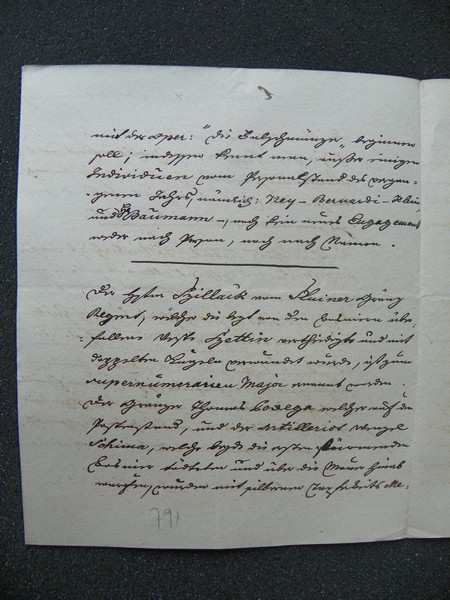 mit der Oper: "die Falschmünzer" beginnen
soll; indessen kennt man, außer einigen
Individuen vom Personalstand des vergan-
genen Jahres, nämlich: Ney – Bernardi – Klein,
und Baumann –, noch kein neues Engagement
weder nach Person, noch nach Namen.
Der Szillack vom Sluiner Gränz
Regmt, welcher die von den Bosniern über-
fallene Veste Zettin vertheidigte und mit
doppelten Kugeln verwundet wurde, ist zum
supernumerairen Major ernannt worden.
Der Gränzer Thomas welcher auf den
Posten stand, und der Artillerist Wenzel
Schima, welche beyde die ersten stürmenden
Bosnier tödteten und über die Mauer hinab
warfen, wurden mit silbernen Tapferkeits Me-
791